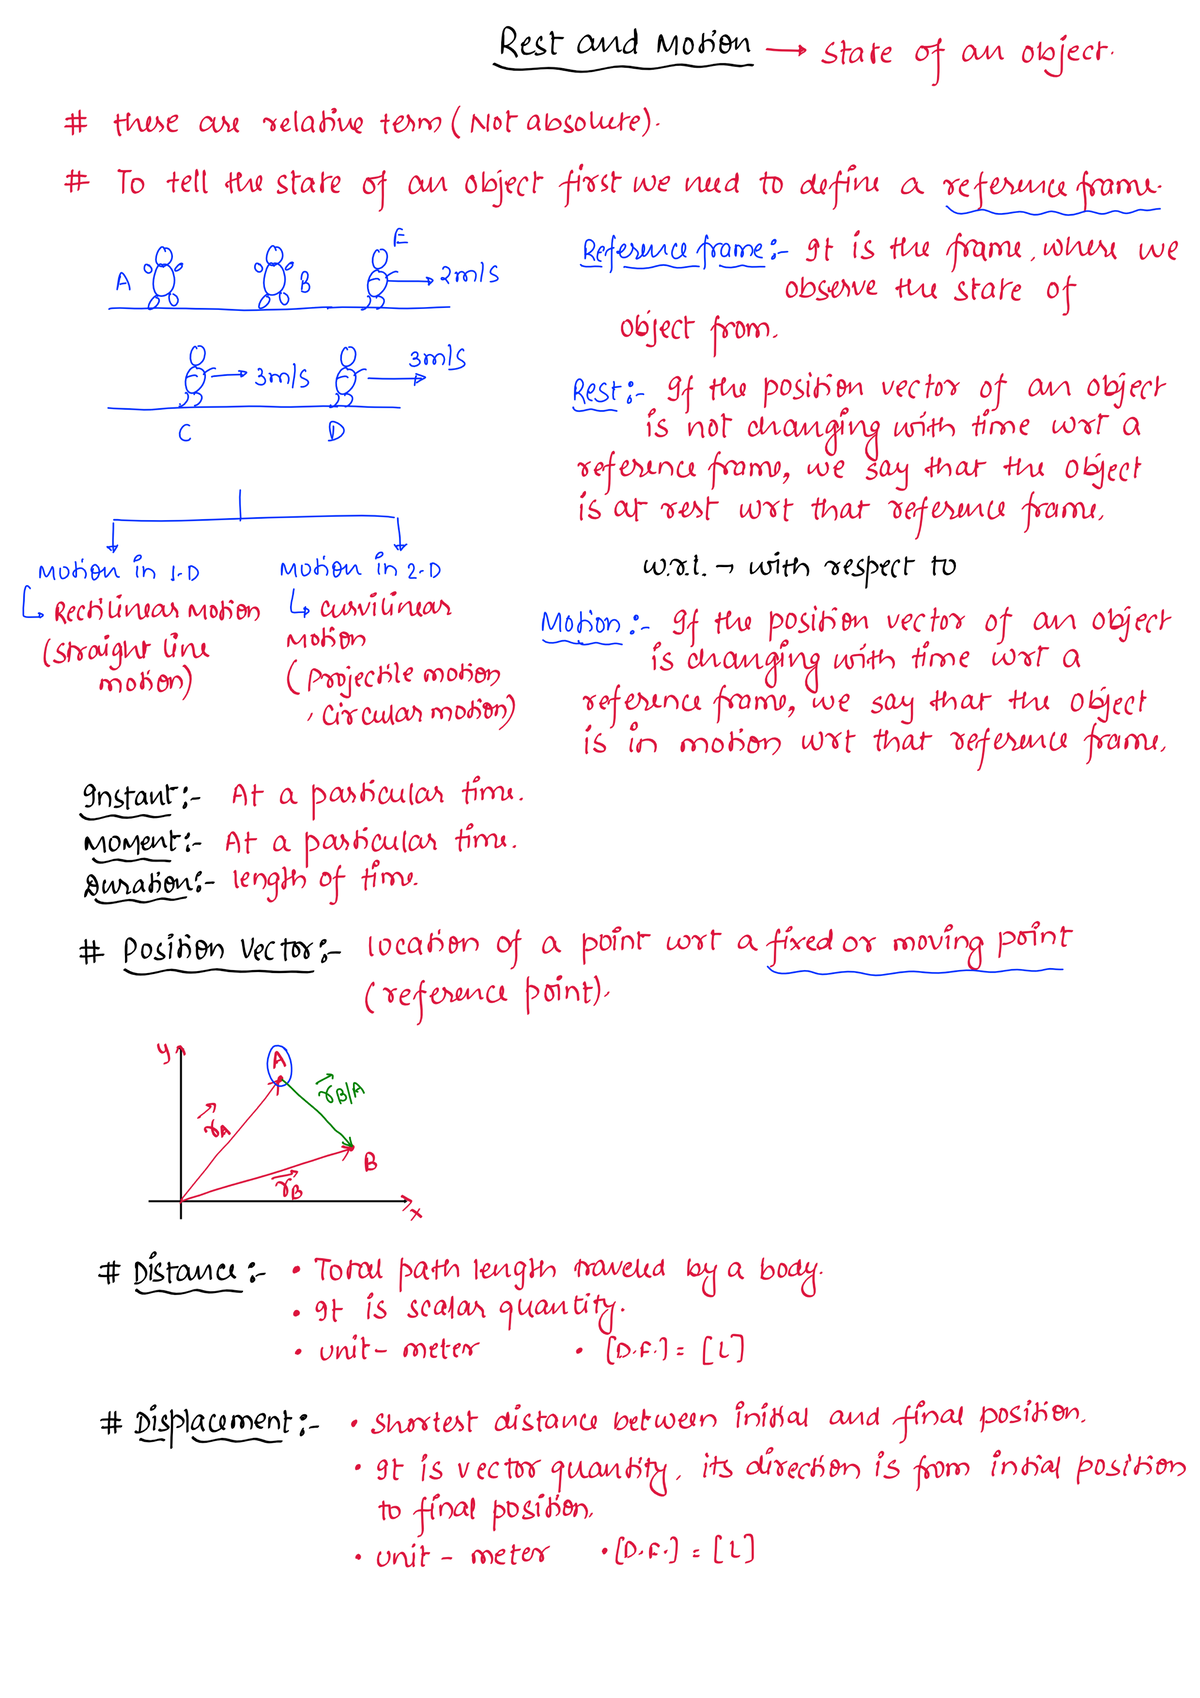 Rest and Motion → State of an object.
# these are relative term (Not absolute).
# To tell the state of an object first we need to define a reference frame.
A B E → 2m/s
Reference frame:- It is the frame, where we
observe the state of
object from.
→ 3m/s 3m/s
C D
Rest:- If the position vector of an object
is not changing with time wrt a
reference frame, we say that the object
is at rest wrt that reference frame.
Motion in 1-D
↳ Rectilinear Motion
(straight line
motion)
Motion in 2-D
↳ curvilinear
Motion
(projectile motion
, circular motion)
w.r.t. → with respect to
Motion:- If the position vector of an object
is changing with time wrt a
reference frame, we say that the object
is in motion wrt that reference frame.
Instant:- At a particular time.
Moment:- At a particular time.
Duration:- length of time.
# Position Vector:- location of a point wrt a fixed or moving point
(reference point).
y
A
r⃗B/A
r⃗A
B
r⃗B
x
# Distance:- • Total path length traveled by a body.
• It is scalar quantity.
• unit - meter • [D.F.] = [L]
# Displacement:- • Shortest distance between initial and final position.
• It is vector quantity, its direction is from intial position
to final position.
• unit - meter • [D.F.] = [L]